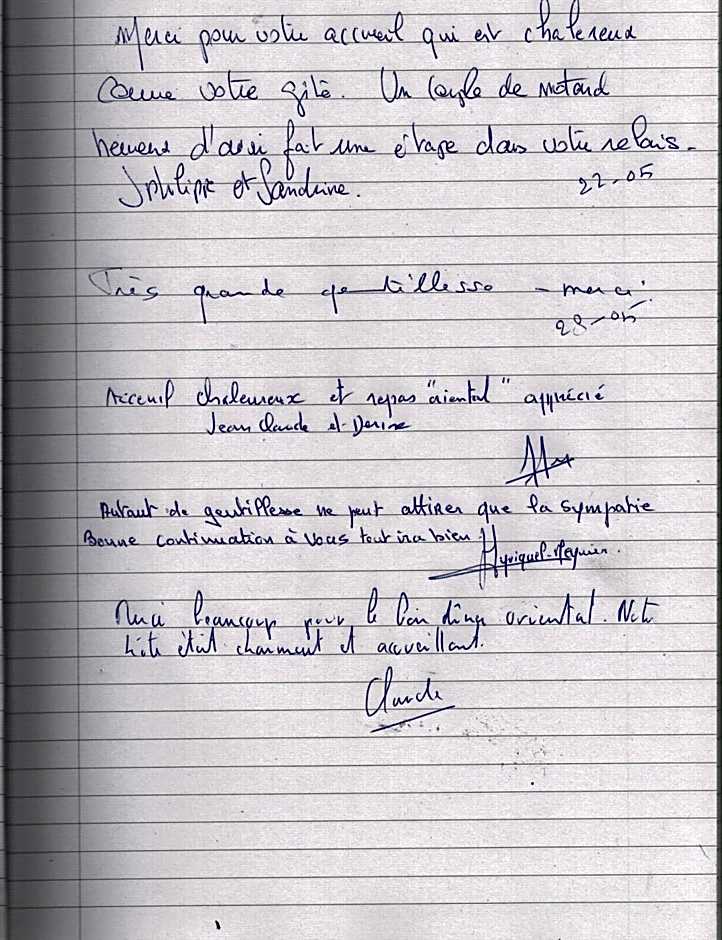 Merci pour votre accueil qui est chalereux
comme votre gîte. Un couple de motard
heureux d'avoir fait une étape dans votre relais.
JPhilippe et Sandrine. 22-05
Très grande gentillesse - merci.
28-05
Acceuil chaleureux et repas "oriental" apprécié
Jean Claude et Denise
Autant de gentillesse ne peut attirer que la sympatie
Bonne continuation à vous tout ira bien
Merci beaucoup pour le bon dîner oriental. Notre
hôte était charment et accueillant.
Claude